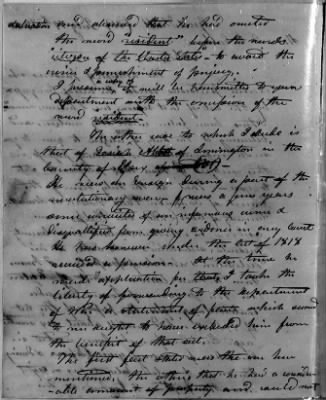 and declared that he had omitted
the word "resident" before the words
citizen of the United States - to avoid the
crime & punishment of perjury.
I presume a copy of it will be transmitted to your
department with the omission of the
word resident.
The other case to which I allude is
that of Isaiah of Limington in the
County of York
He was an Ensign during a part of the
revolutionary war & was a few years
since convicted of an infamous crime &
disqualified from giving evidence in any Court
He was however under the Act of 1818
a pension. At the time he
made application for that, I took the
liberty of forwarding to the department
of War a statement of facts, which seemed
to me ought to have excluded him from
the benefit of that act.
The first fact stated was the one here
mentioned, the other that he had a consider-
able amount of property and could not